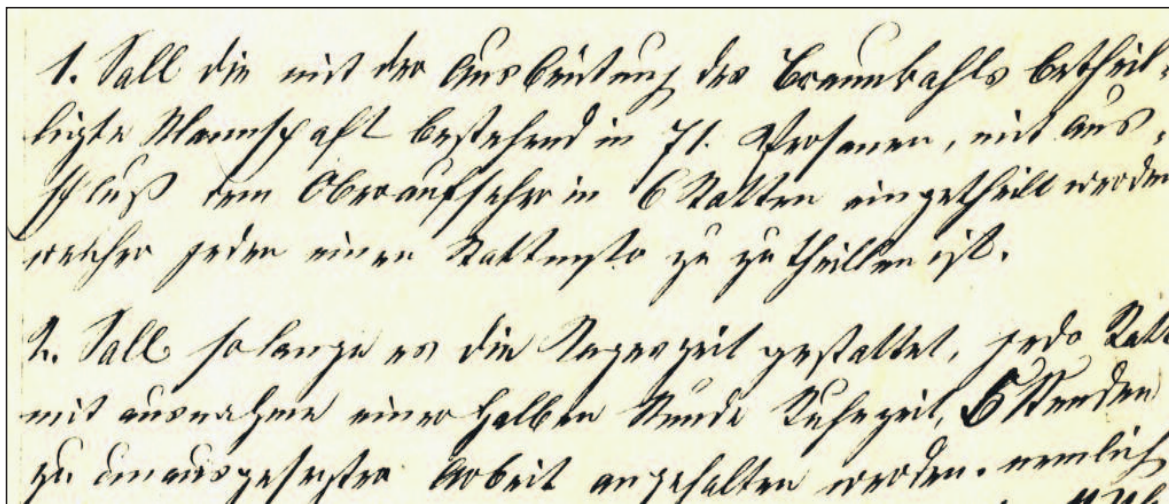 1. Soll die mit der Ausbeutung des Braunkohls betheil-
ligte Mannschaft bestehend in 71. Personen, mit Aus-
schluß dem Oberaufseher in 6 Rotten eingetheilt werden
welcher jeder einen Rottmstr zu zu theillen ist.
2. Soll solange es die Tageszeit gestattet, jede Rott
mit ausnahme einer halben Stunde Ruhezeit, 6 Stunden
zu unausgesetzter Arbeit angehalten werden. nemlich